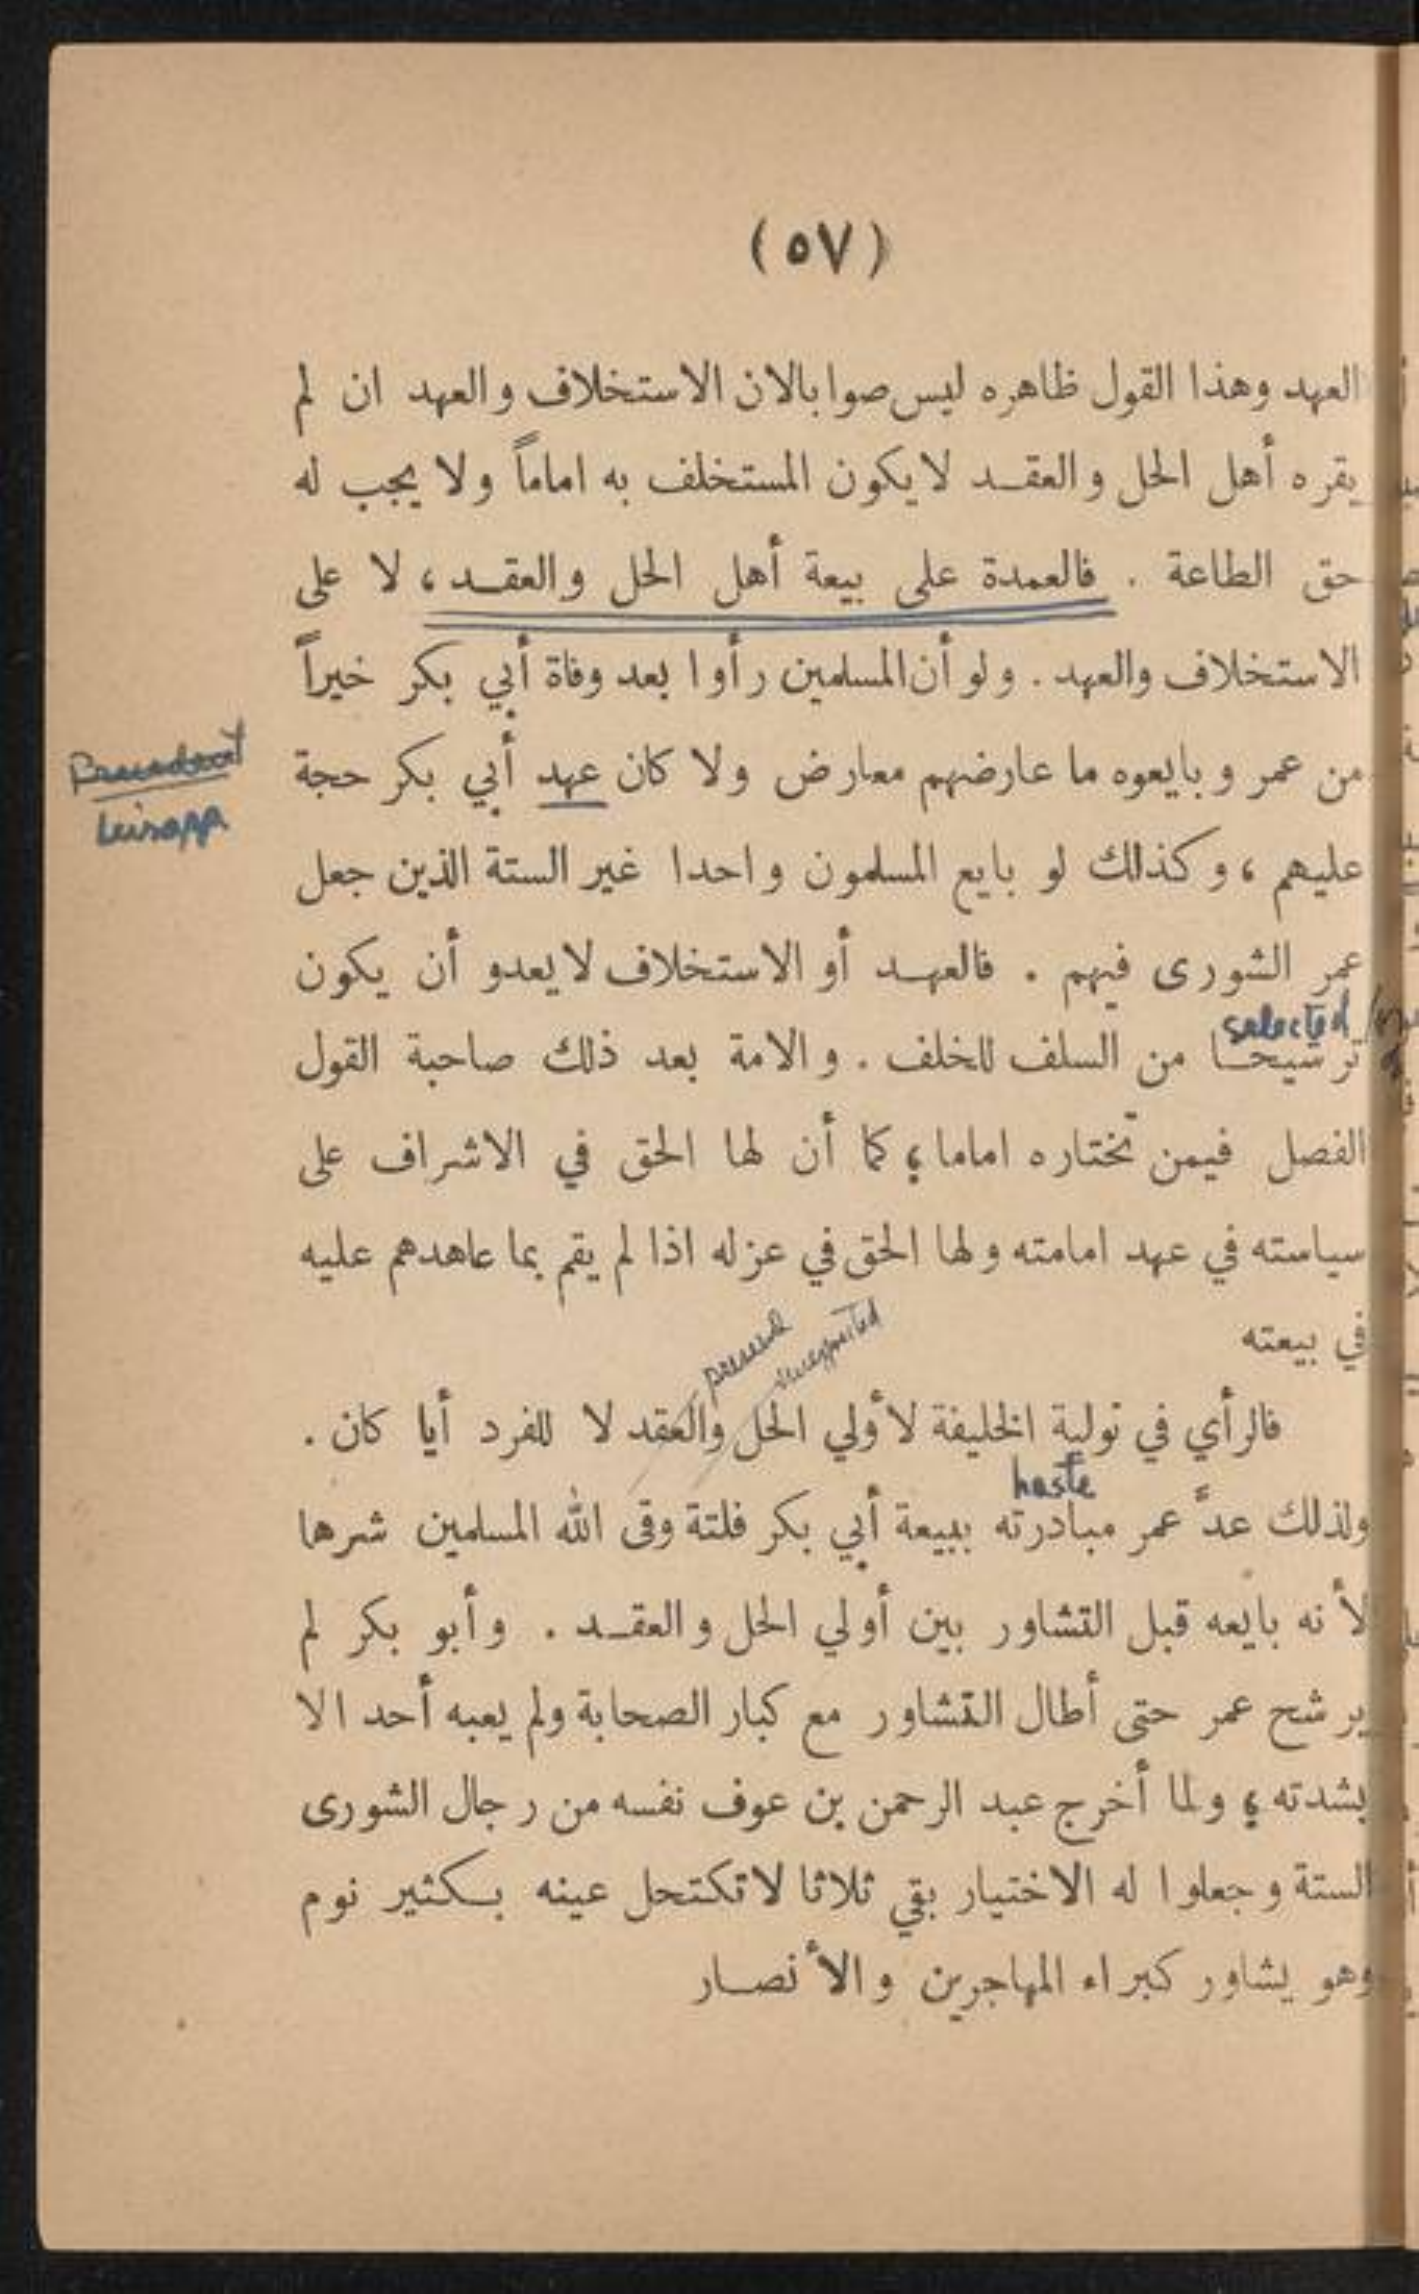 (٥٧)
العهد وهذا القول ظاهره ليس صوابالان الاستخلاف والعهد ان لم
يقره أهل الحل والعقـد لا يكون المستخلف به اماماً ولا يجب له
حق الطاعة . فالعمدة على بيعة أهل الحل والعقـد، لا على
الاستخلاف والعهد . ولو أن المسلمين رأوا بعد وفاة أبي بكر خيراً
من عمر وبايعوه ما عارضهم معارض ولا كان عهد أبي بكر حجة
عليهم، وكذلك لو بايع المسلمون واحدا غير الستة الذين جعل
عمر الشورى فيهم . فالعهـد أو الاستخلاف لا يعدو أن يكون
selected
ترشيحـا من السلف للخلف . والامة بعد ذلك صاحبة القول
الفصل فيمن تختاره اماما، كما أن لها الحق في الاشراف على
سياسته في عهد امامته ولها الحق في عزله اذا لم يقم بما عاهدهم عليه
في بيعته
فالرأي في تولية الخليفة لأولي الحل والعقد لا للفرد أيا كان .
haste
ولذلك عدَّ عمر مبادرته ببيعة أبي بكر فلتة وقى الله المسلمين شرها
لأنه بايعه قبل التشاور بين أولي الحل والعقـد . وأبو بكر لم
يرشح عمر حتى أطال التشاور مع كبار الصحابة ولم يعبه أحد الا
بشدته، ولما أخرج عبد الرحمن بن عوف نفسه من رجال الشورى
الستة وجعلوا له الاختيار بقي ثلاثا لا تكتحل عينه بـكثير نوم
وهو يشاور كبراء المهاجرين والأنصـار